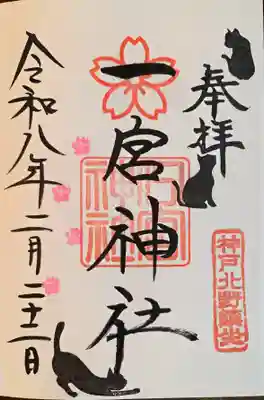 奉拝
神戸北野鎮座
一宮神社
一宮神社
令和八年二月二十二日